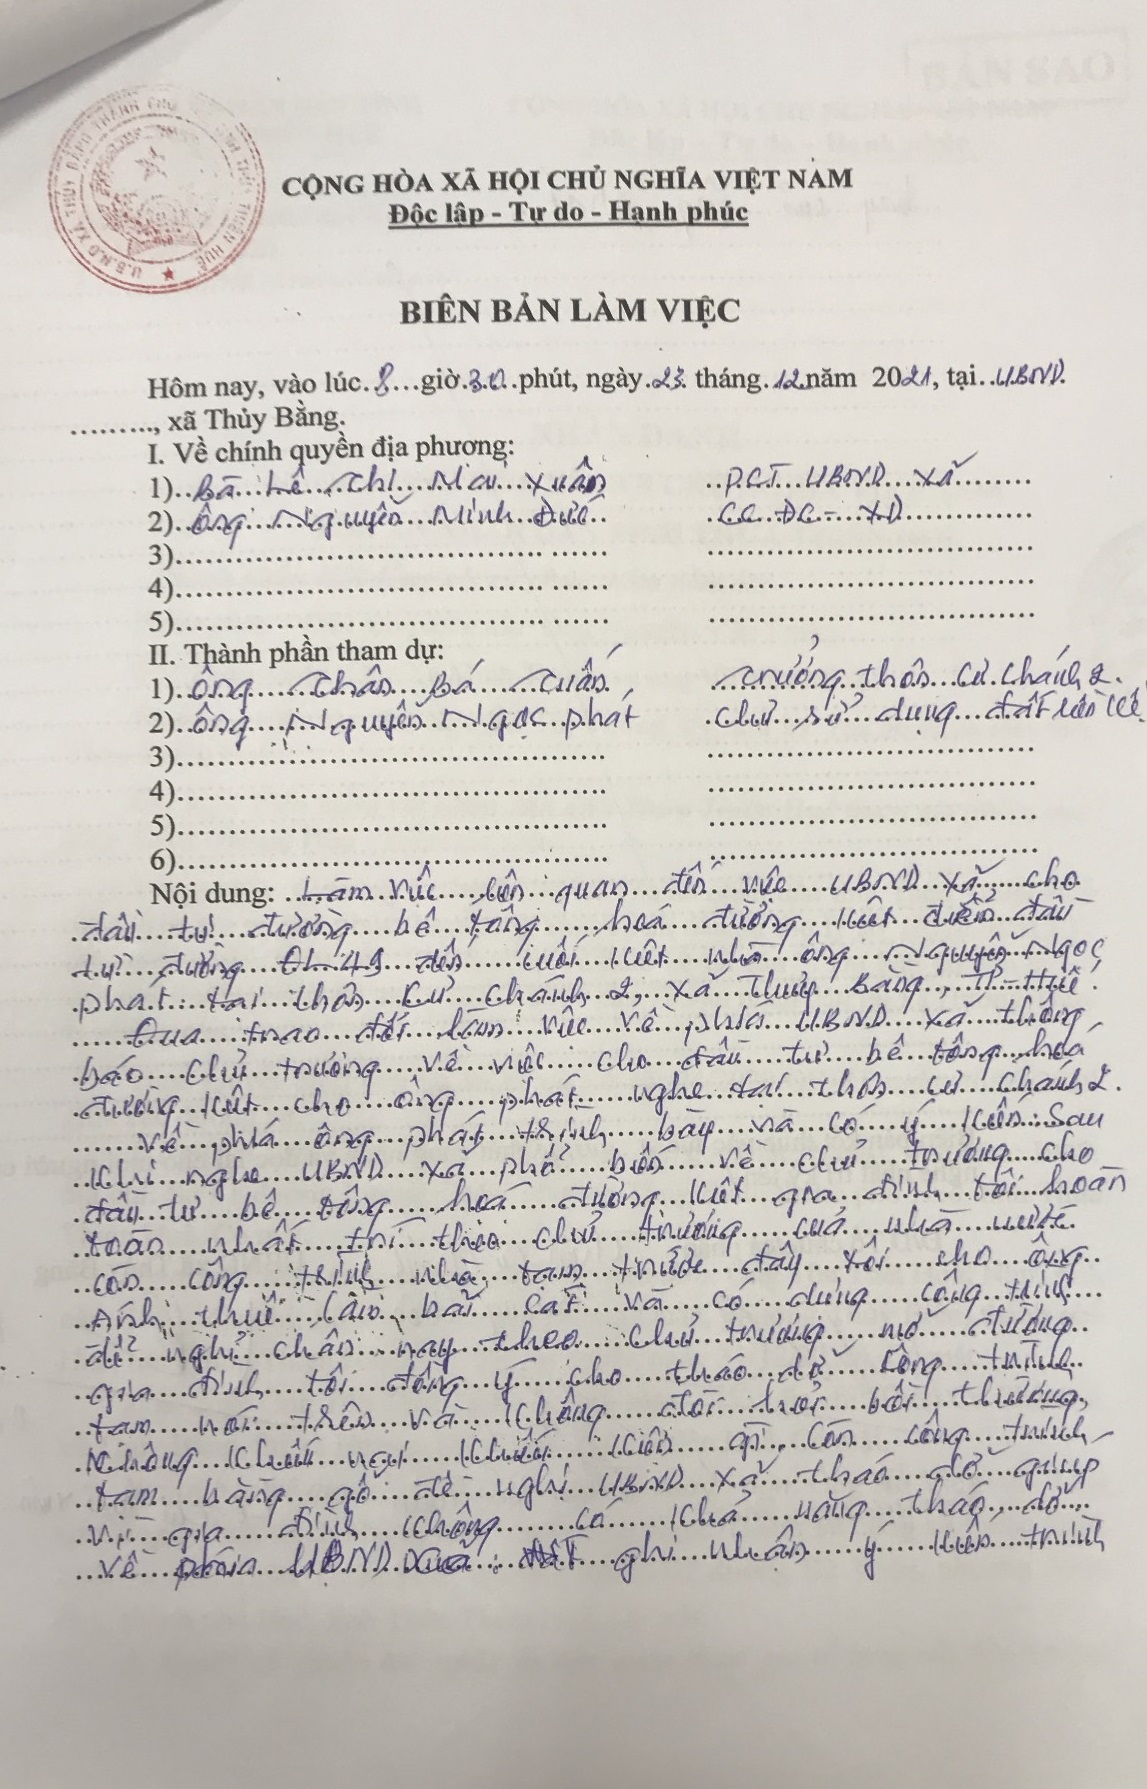 CỘNG HÒA XÃ HỘI CHỦ NGHĨA VIỆT NAM
Độc lập - Tự do - Hạnh phúc
BIÊN BẢN LÀM VIỆC
Hôm nay, vào lúc 8 giờ 30 phút, ngày 23 tháng 12 năm 2021, tại UBND
........., xã Thủy Bằng.
I. Về chính quyền địa phương:
1) Bà Lê Thị Mai Xuân P.CT UBND xã
2) Ông Nguyễn Minh Đức CC ĐC - XD
3)
4)
5)
II. Thành phần tham dự:
1) Ông Trần Bá Tuấn Trưởng thôn Cư Chánh 2.
2) Ông Nguyễn Ngọc Phát Chủ sử dụng đất
3)
4)
5)
6)
Nội dung: Làm việc liên quan đến việc UBND xã cho
đầu tư đường bê tông hoá đường kiệt điểm đầu
từ đường QL49 đến cuối kiệt nhà ông Nguyễn Ngọc
Phát tại thôn Cư Chánh 2, xã Thủy Bằng, TP-Huế.
Qua trao đổi làm việc về phía UBND xã thông
báo chủ trương về việc cho đầu tư bê tông hoá
đường kiệt cho ông Phát nghe tại thôn Cư Chánh 2.
Về phía ông Phát trình bày và có ý kiến: Sau
khi nghe UBND xã phổ biến về chủ trương cho
đầu tư bê tông hoá đường kiệt gia đình tôi hoàn
toàn nhất trí theo chủ trương của nhà nước
còn công trình nhà tạm trước đây tôi cho ông
Ánh thuê làm bãi cát và có dựng công trình
để nghỉ chân nay theo chủ trương mở đường
gia đình tôi đồng ý cho tháo dỡ công trình
tạm nói trên và không đòi hỏi bồi thường,
không khiếu nại khiếu kiện gì, còn công trình
tạm bằng gỗ đề nghị UBND xã tháo dỡ giúp
vì gia đình không có khả năng tháo dỡ.
Về phía UBND xã: ghi nhận ý kiến trình